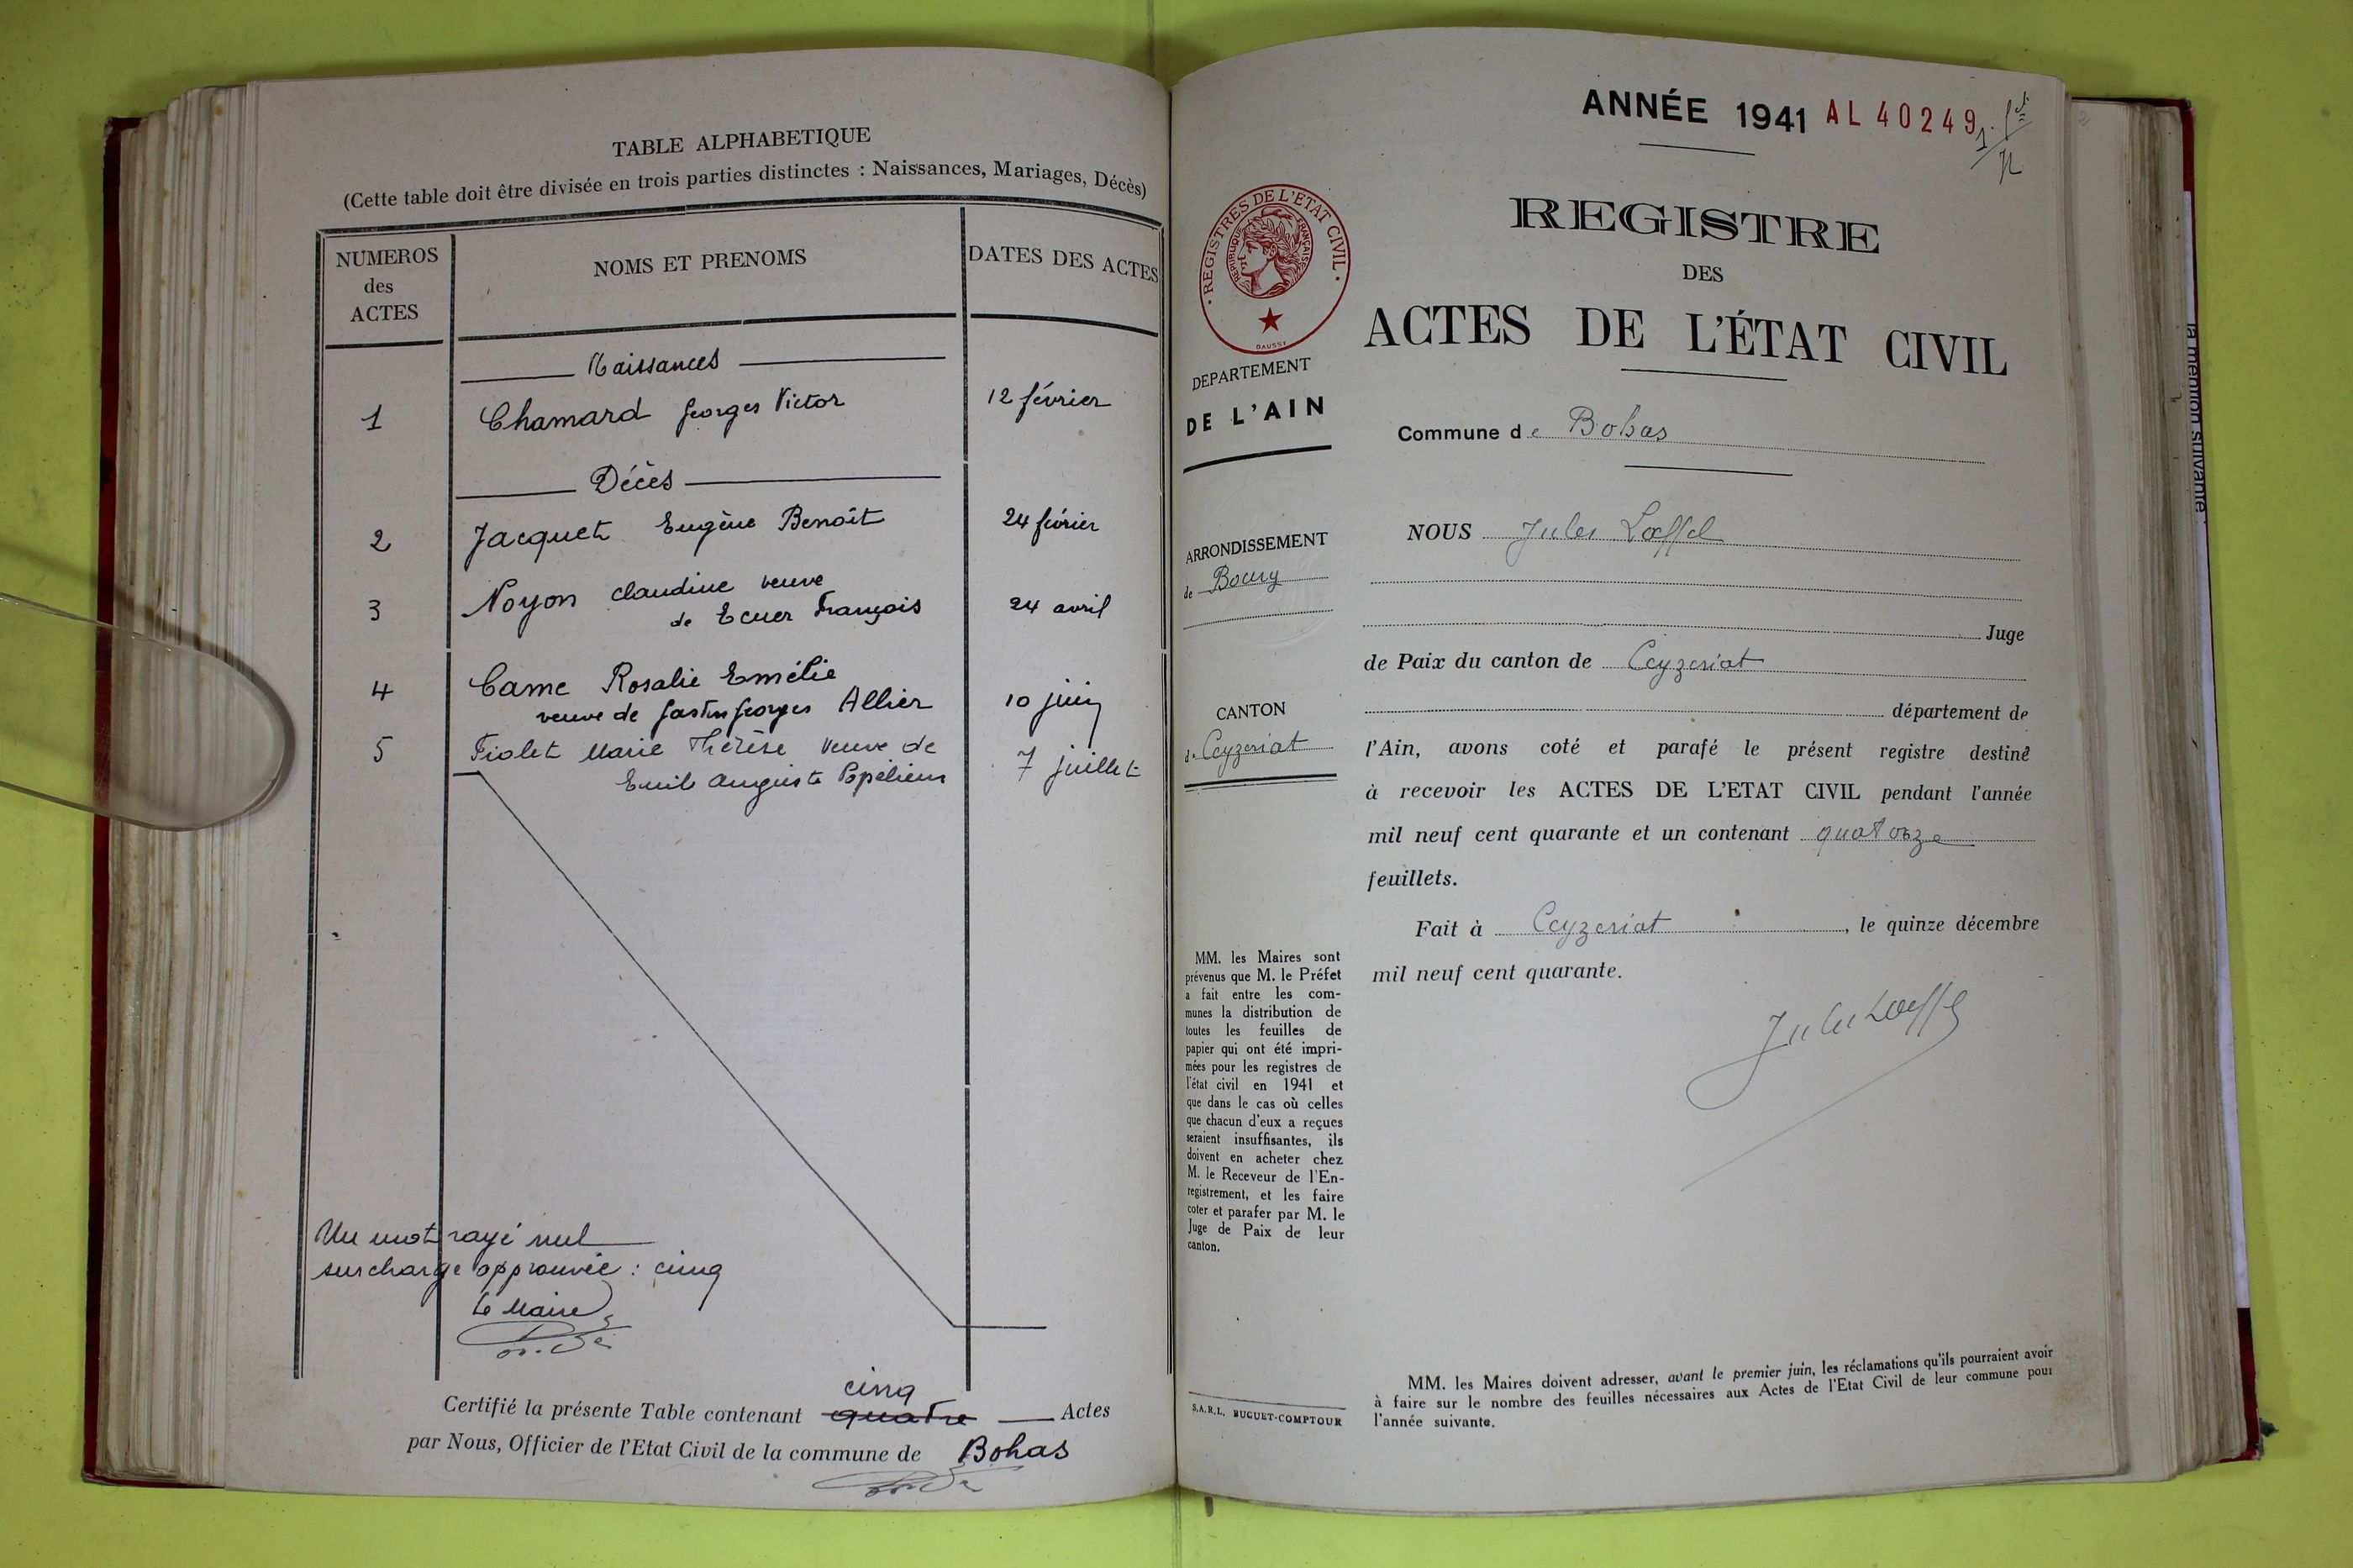 TABLE ALPHABETIQUE
(Cette table doit être divisée en trois parties distinctes : Naissances, Mariages, Décès)
NUMEROS des ACTES
NOMS ET PRENOMS
DATES DES ACTES
Naissances
1 Chamard Georges Victor 12 février
Décès
2 Jacquet Eugène Benoît 24 février
3 Noyon Claudine veuve
de Ecuer François 24 avril
4 Came Rosalie Emélie
veuve de Gaston Georges Allier 10 juin
5 Fiolet Marie Thérèse veuve de
Emile Auguste Popélieux 7 juillet
Un mot rayé nul
surcharge approuvée : cinq
Le Maire
cinq
Certifié la présente Table contenant quatre Actes
par Nous, Officier de l'Etat Civil de la commune de Bohas
ANNÉE 1941 AL 40249
REGISTRES DE L'ETAT CIVIL
REPUBLIQUE FRANÇAISE
DAUSSY
DEPARTEMENT
DE L'AIN
ARRONDISSEMENT
de Bourg
CANTON
de Ceyzeriat
MM. les Maires sont
prévenus que M. le Préfet
a fait entre les com-
munes la distribution de
toutes les feuilles de
papier qui ont été impri-
mées pour les registres de
l'état civil en 1941 et
que dans le cas où celles
que chacun d'eux a reçues
seraient insuffisantes, ils
doivent en acheter chez
M. le Receveur de l'En-
registrement, et les faire
coter et parafer par M. le
Juge de Paix de leur
canton.
S.A.R.L. BUGUET-COMPTOUR
REGISTRE
DES
ACTES DE L'ÉTAT CIVIL
Commune de Bohas
NOUS Jules Lœffel
Juge
de Paix du canton de Ceyzeriat
département de
l'Ain, avons coté et parafé le présent registre destiné
à recevoir les ACTES DE L'ETAT CIVIL pendant l'année
mil neuf cent quarante et un contenant quatorze
feuillets.
Fait à Ceyzeriat, le quinze décembre
mil neuf cent quarante.
Jules Lœffel
MM. les Maires doivent adresser, avant le premier juin, les réclamations qu'ils pourraient avoir
à faire sur le nombre des feuilles nécessaires aux Actes de l'Etat Civil de leur commune pour
l'année suivante.
la mention suivante